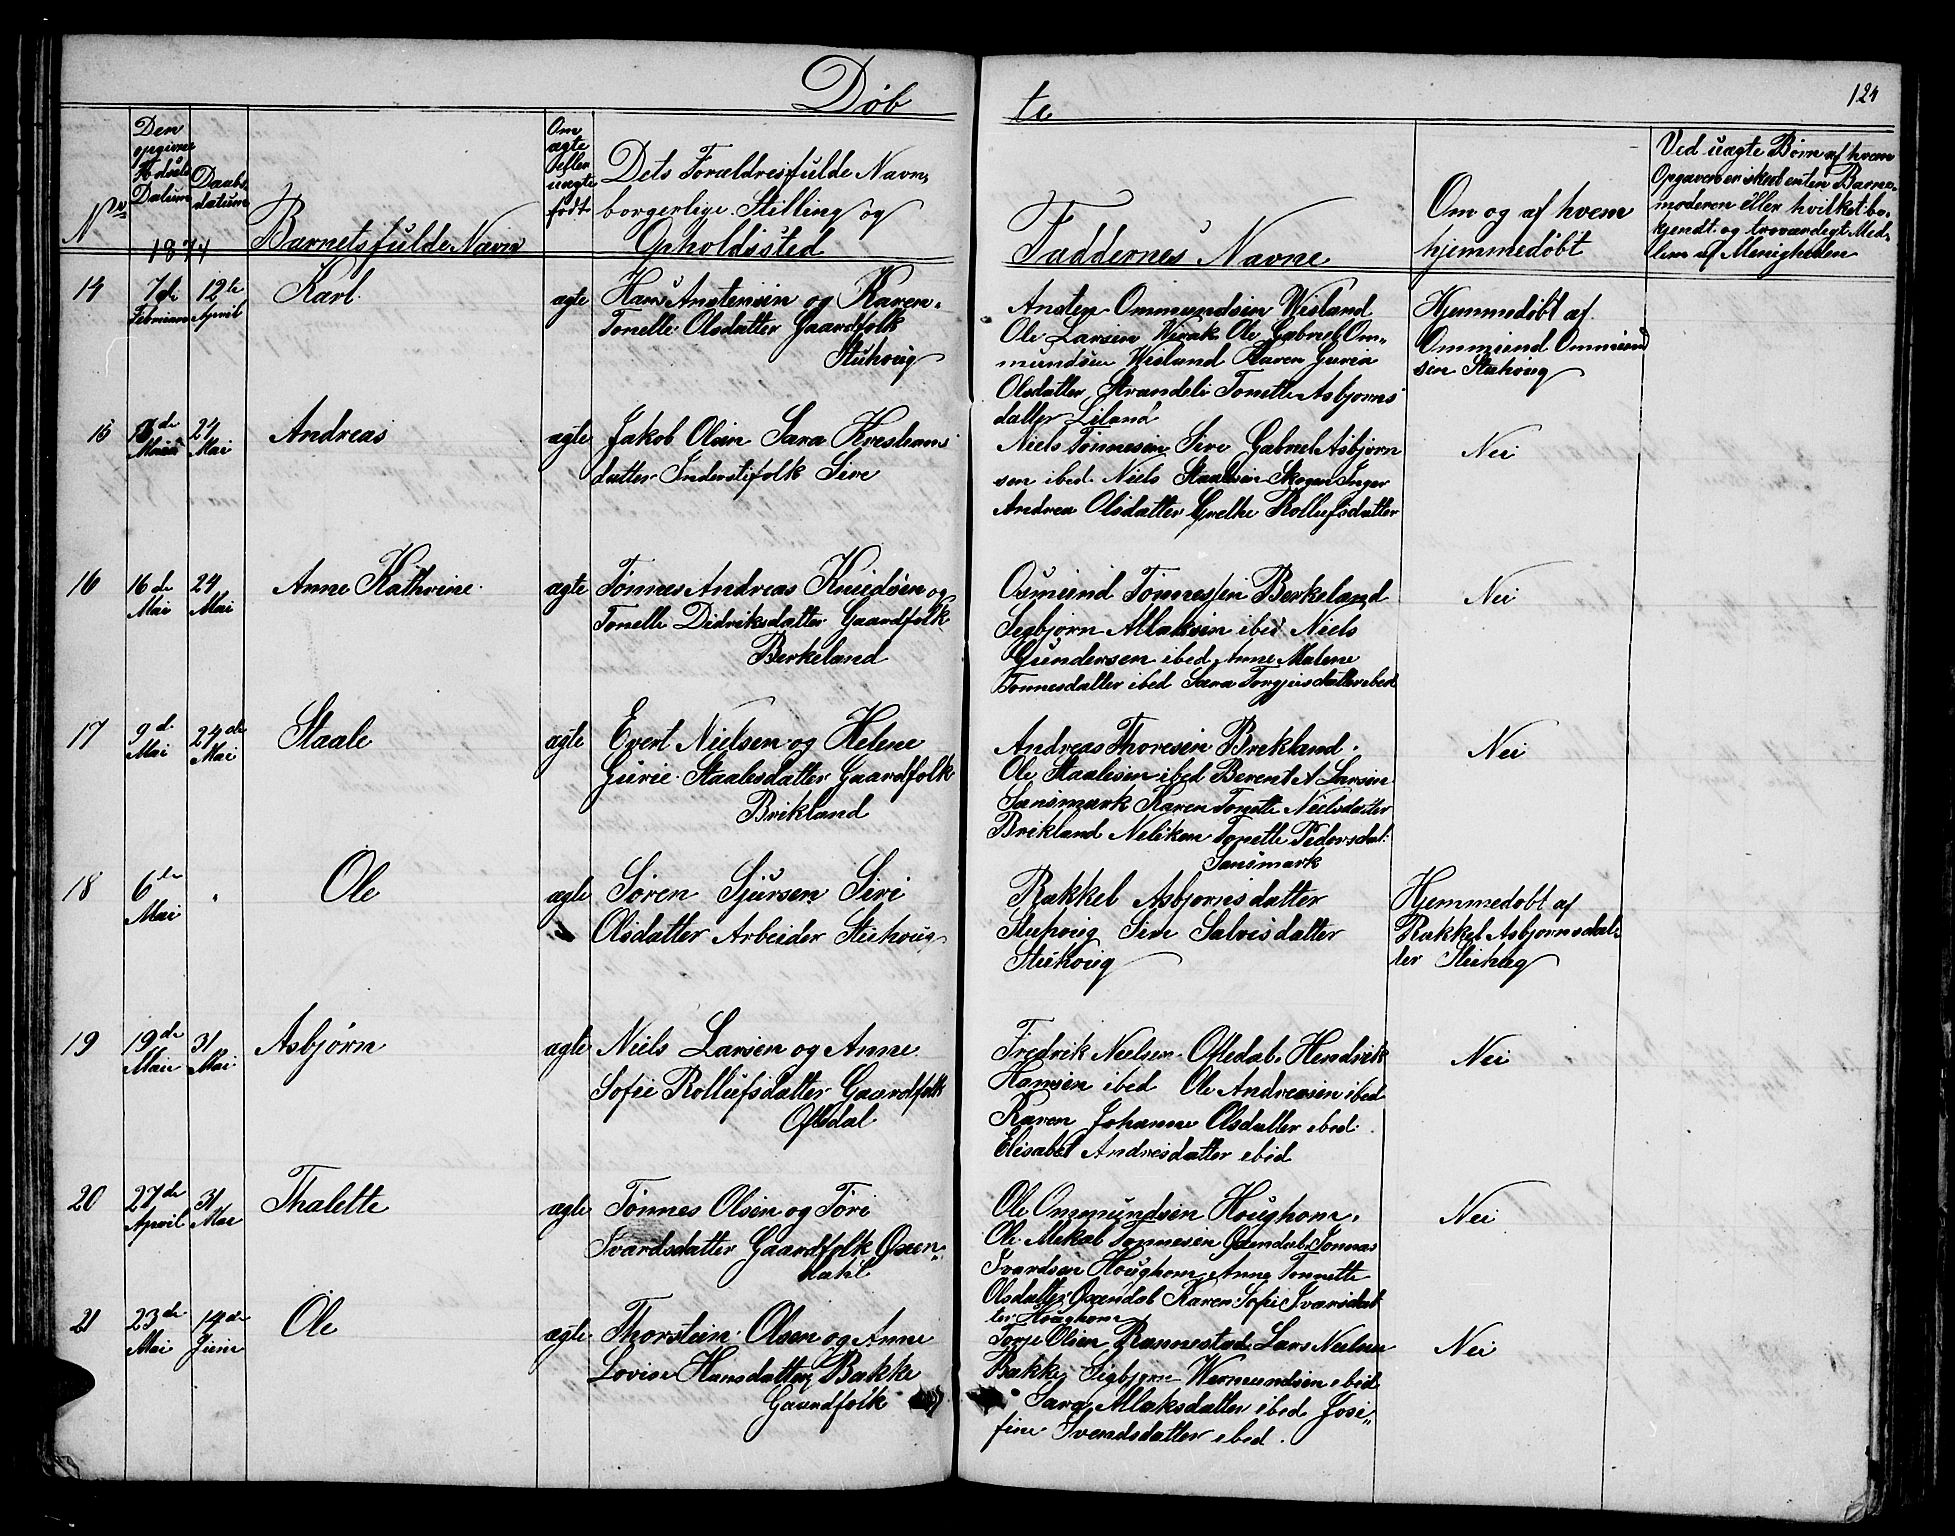 Døb te
124
No
Den
opgivne
Fødsels
Datum
Daabs
datum
1874
Barnets fulde Navn
Om
ægte
eller
uægte
født
Dets Forældres fulde Navn,
borgerlige Stilling og
Opholdssted
Faddernes Navne
Om og af hvem
hjemmedøbt
Ved uægte Børn af hvem
Opgaven er skeet enten Barne-
moderen eller hvilket be-
kjendt og troværdigt Med-
lem af Menigheden
14
7de
Februar
12te
April
Karl
ægte
Hans Anstensen og Karen
Tonelle Olsdatter Gaardfolk
Stuhoug
Ansten Ommundsen Wisland
Ole Larsen Wirak Ole Gabriel Om-
mundsen Wisland Karen Guria
Olsdatter Strandeli Tonette Asbjorns
datter Liland
Hjemmedøbt af
Ommund Ommund
sen Stuhoug
15
24
Mai
Andreas
ægte
Jakob Olsen Sara
datter Inderstifolk Sire
Niels Tønnesen Sire Gabriel Asbjorn
sen ibed. Niels Staalesen Skogen Inger
Andrea Olsdatter Grethe Rollufsdatter
Nei
16
16de
Mai
24
Mai
Anne Kathrine
ægte
Tønnes Andreas Knudsen og
Tonelle Didriksdatter Gaardfolk
Berkeland
Osmund Tønnessen Berkeland
Segbjorn Allaksen ibed Niels
Gundersen ibed Anne Malene
Tonnesdatter ibed Sara Torgjusdatter ibed
Nei
17
9de
Mai
24de
Mai
Staale
ægte
Evert Nielsen og Helene
Gurie Staalesdatter Gaardfolk
Brikland
Andreas Thoresen Brekland
Ole Staalesen ibed Berent A Larsen
Sansmark Karen Tonette Nielsdatter
Brikland Neliken Tonette Pedersdat.
Sansmark
Nei
18
6te
Mai
Ole
ægte
Søren Sjursen Siri
Olsdatter Arbeider Stuhoug
Rakkel Asbjornsdatter
Stuhoug Siri Salvesdatter
Stuhoug
Hjemmedøbt af
Rakkel Asbjornsdat-
ter Stuhoug
19
19de
Mai
31
Mai
Asbjørn
ægte
Niels Larsen og Anne
Sofie Rollufsdatter Gaardfolk
Oftedal
Fredrik Nielsen Oftedal Hendrik
Hansen ibed Ole Andreasen ibed
Karen Johanne Olsdatter ibed
Elisabet Andresdatter ibid
Nei
20
27de
April
31
Mai
Thalette
ægte
Tønnes Olsen og Tøri
Ivarsdatter Gaardfolk Oxen-
dahl
Ole Ommundsen Houghom
Ole Mekal Tonnesen Oxendal Tonnas
Ivardsen Houghom Anne Tonnette
Olsdatter Oxendal Karen Sofie Ivarsdat
ter Houghom
Nei
21
23de
Mai
14de
Juni
Ole
ægte
Thorstein Olsen og Anne
Lovise Hansdatter Bakke
Gaardfolk
Torje Olsen Rannestad Lars Nielsen
Bakke Sigbjorn Wermundsen ibid
Sara Allaksdatter ibed Josi-
fine Svendsdatter ibed.
Nei